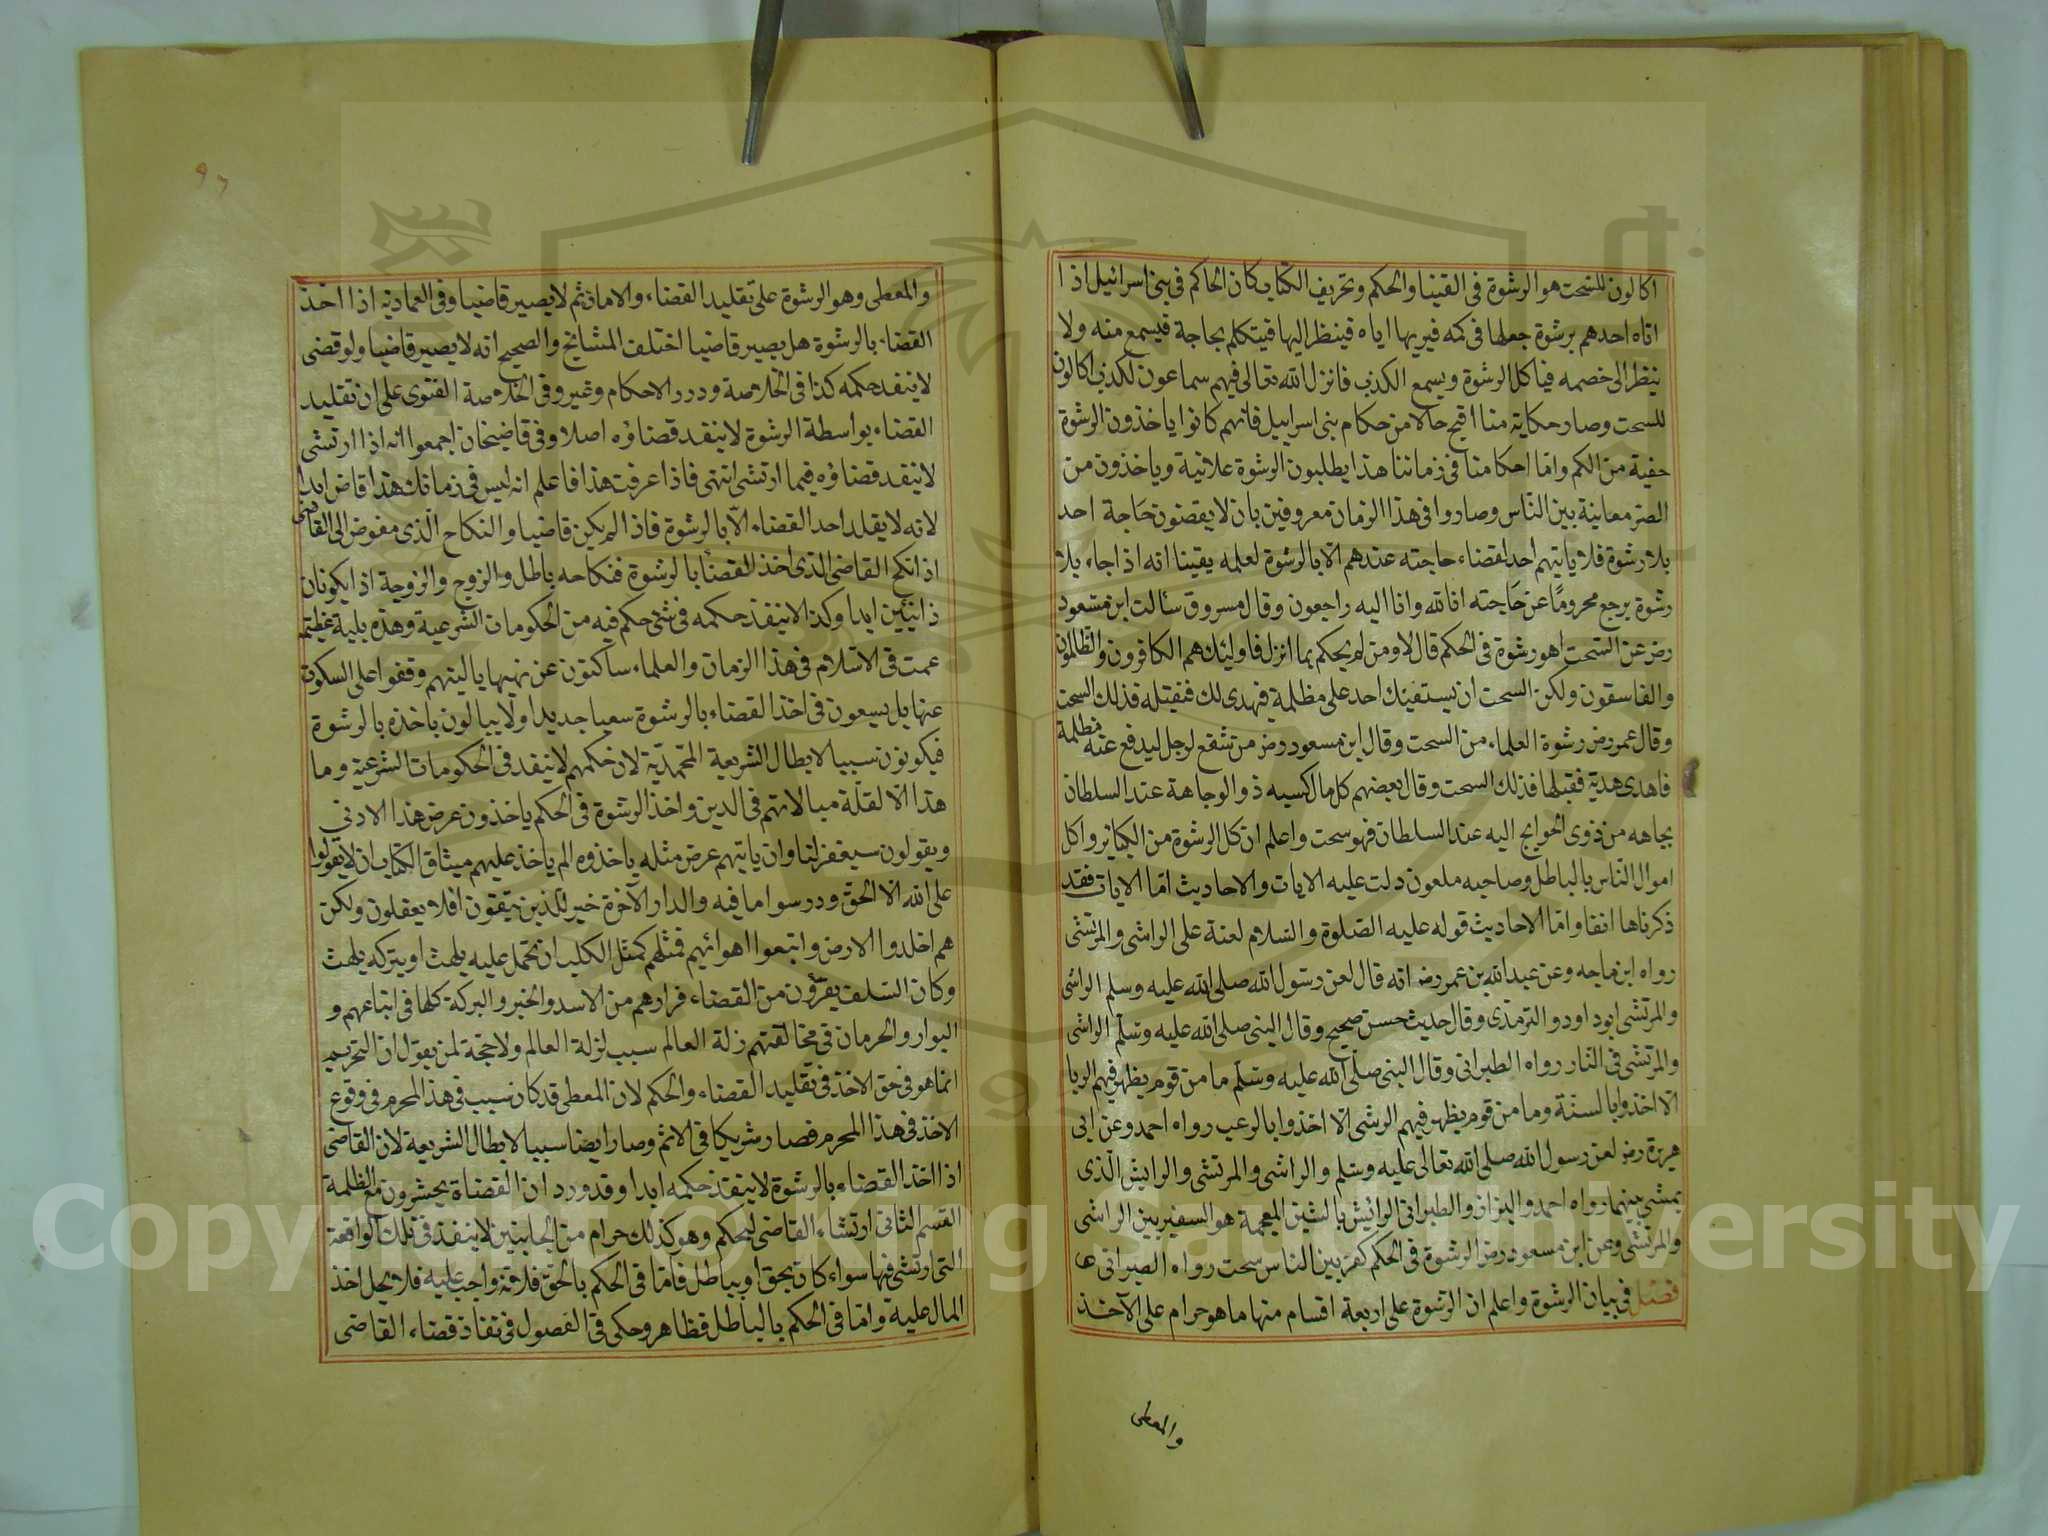 اكالون للسحت هو الرشوة فى القينا والحكم وتحريف الكتاب كان الحاكم فى بنى اسرائيل اذا
اتاه احدهم برشوة جعلها فى كمه فيريها اياه فينظر اليها فيتكلم بحاجة فيسمع منه ولا
ينظر الى خصمه فياكل الرشوة ويسمع الكذب فانزل الله تعالى فيهم سماعون لكذب اكالون
للسحت وصار حكاية منا اقبح حالا من حكام بنى اسراييل فانهم كانوا ياخذون الرشوة
حفية من الكم واما احكامنا فى زماننا هذا يطلبون الرشوة علانية وياخذون من
الصتر معاينة بين الناس وصاروا فى هذا الزمان معروفين بان لا يقضون حاجة احد
بلا رشوة فلا ياتيهم احد لقضاء حاجته عندهم الا بالرشوة لعلمه يقينا انه اذا جاء بلا
رشوة يرجع محروما عن حاجته انا لله وانا اليه راجعون وقال مسروق سالت ابن مسعود
رض عن السحت اهو رشوة فى الحكم قال لا ومن لم يحكم بما انزل فاوليئك هم الكافرون والظالمون
والفاسقون ولكن السحت ان يستفيئك احد على مظلمة فيهدى لك فتقبله فذلك السحت
وقال عمر رض رشوة العلماء من السحت وقال ابن مسعود رض من تشفع لرجل ليدفع عنه مظلمة
فاهدى هدية فقبلها فذلك السحت وقال بعضهم كل مال كسبه ذو الوجاهة عند السلطان
بجاهه من ذوى الحوايج اليه عند السلطان فهو سحت واعلم ان كل الرشوة من الكبائر واكل
اموال الناس بالباطل وصاحبه ملعون دلت عليه الايات والاحاديث اما الايات فقد
ذكرناها انفا واما الاحاديث قوله عليه الصلوة والسلام لعنة على الراشى والمرتشى
رواه ابن ماجه وعن عبد الله بن عمر رض انه قال لعن رسول الله صلى الله عليه وسلم الراشى
والمرتشى ابو داود والترمذى وقال حديث حسن صحيح وقال النبى صلى الله عليه وسلم الراشى
والمرتشى فى النار رواه الطبرانى وقال النبى صلى الله عليه وسلم ما من قوم يظهر فيهم الربا
الا اخذوا بالسنة وما من قوم يظهر فيهم الرشى الا اخذوا بالرعب رواه احمد وعن ابى
هريرة رض لعن رسول الله صلى الله تعالى عليه وسلم والراشى والمرتشى والرايش الذى
يمشى بينهما رواه احمد والبزار والطبرانى الرائيش بالشين المعجمة هو السفير بين الراشى
والمرتشى وعن ابن مسعود رض الرشوة فى الحكم كفر بين الناس سحت رواه الصبرانى
فصل فى بيان الرشوة واعلم ان الرشوة على اربعة اقسام منها ما هو حرام على الآخذ
والمعطى
٩٦
والمعطى وهو الرشوة على تقليد القضاء والاماذ ثم لا يصير قاضيا وفى العمادية اذا اخذ
القضاء بالرشوة هل يصير قاضيا اختلف المشائخ والصحيح انه لا يصير قاضيا ولو قضى
لا ينفد حكمه كذا فى الخلاصة ودرر الاحكام وغير وفى الخلاصة الفتوى على ان تقليد
القضاء بواسطة الرشوة لا ينفد قضاؤه اصلا وفى قاضيخان اجمعوا انه اذا ارتشى
لا ينفد قضاؤه فيما ارتشى انتهى فاذا عرفت هذا فاعلم انه ليس فى زمانك هذا قاض ابدا
لانه لا يقلد احد القضاء الا بالرشوة فاذا لم يكن قاضيا والنكاح الذى مفوض الى القاضى
اذا نكح القاضى الذى اخذ القضا بالرشوة فنكاحه باطل والزوج والزوجة اذا يكونان
ذانيين ابدا وكذا لا ينفذ حكمه فى شئ حكم فيه من الحكومات الشرعية وهذه بلية عظيمة
عمت فى الاسلام فى هذا الزمان والعلماء ساكتون عن نهيها يا ليتهم وقفوا على السكوت
عنها بل يسعون فى اخذ القضاء بالرشوة سعيا جديدا ولا يبالون باخذه بالرشوة
فيكونون سببا لابطال الشريعة المحمدية لان حكمهم لا ينفد فى الحكومات الشرعية وما
هذا الا لقلة مبالاتهم فى الدين واخذ الرشوة فى الحكم ياخذون عرض هذا الادنى
ويقولون سيغفر لنا وان ياتيهم عرض مثله ياخذوه الم ياخذ عليهم ميثاق الكتاب ان لا يقولوا
على الله الا الحق ودرسوا ما فيه والدار الآخرة خير للذين يتقون افلا يعقلون ولكن
هم اخلدوا الارض واتبعوا اهوائهم فمثلهم كمثل الكلب ان تحمل عليه يلهث او يتركه يلهث
وكان السلف يفرون من القضاء فرارهم من الاسد والخير والبركة كلها فى اتباعهم و
البوار والحرمان فى مخالفتهم زلة العالم سبب لزلة العالم ولا حجة لمن يقول ان التحريم
انما هو فى حق الاخذ فى تقليد القضاء والحكم لان المعطى قد كان سبب فى هذا المحرم فى وقوع
الاخذ فى هذا المحرم فصار شريكا فى الاثم وصار ايضا سببا لابطال الشريعة لان القاضى
اذا اخذ القضاء بالرشوة لا ينفذ حكمه ابدا وقد ورد ان القضاة يحشرون مع الظلمة
القسم الثانى ارتشاء القاضى ليحكم وهو كذلك حرام من الجانبين لا ينفذ فى تلك الواقعة
التى ارتشى فيها سواء كان بحق او بباطل فاما فى الحكم بالحق فلانه واجب عليه فلا يحل اخذ
المال عليه واما فى الحكم بالباطل فظاهر وحكى فى الفصول فى نفاذ قضاء القاضى
Copyright © King Saud University